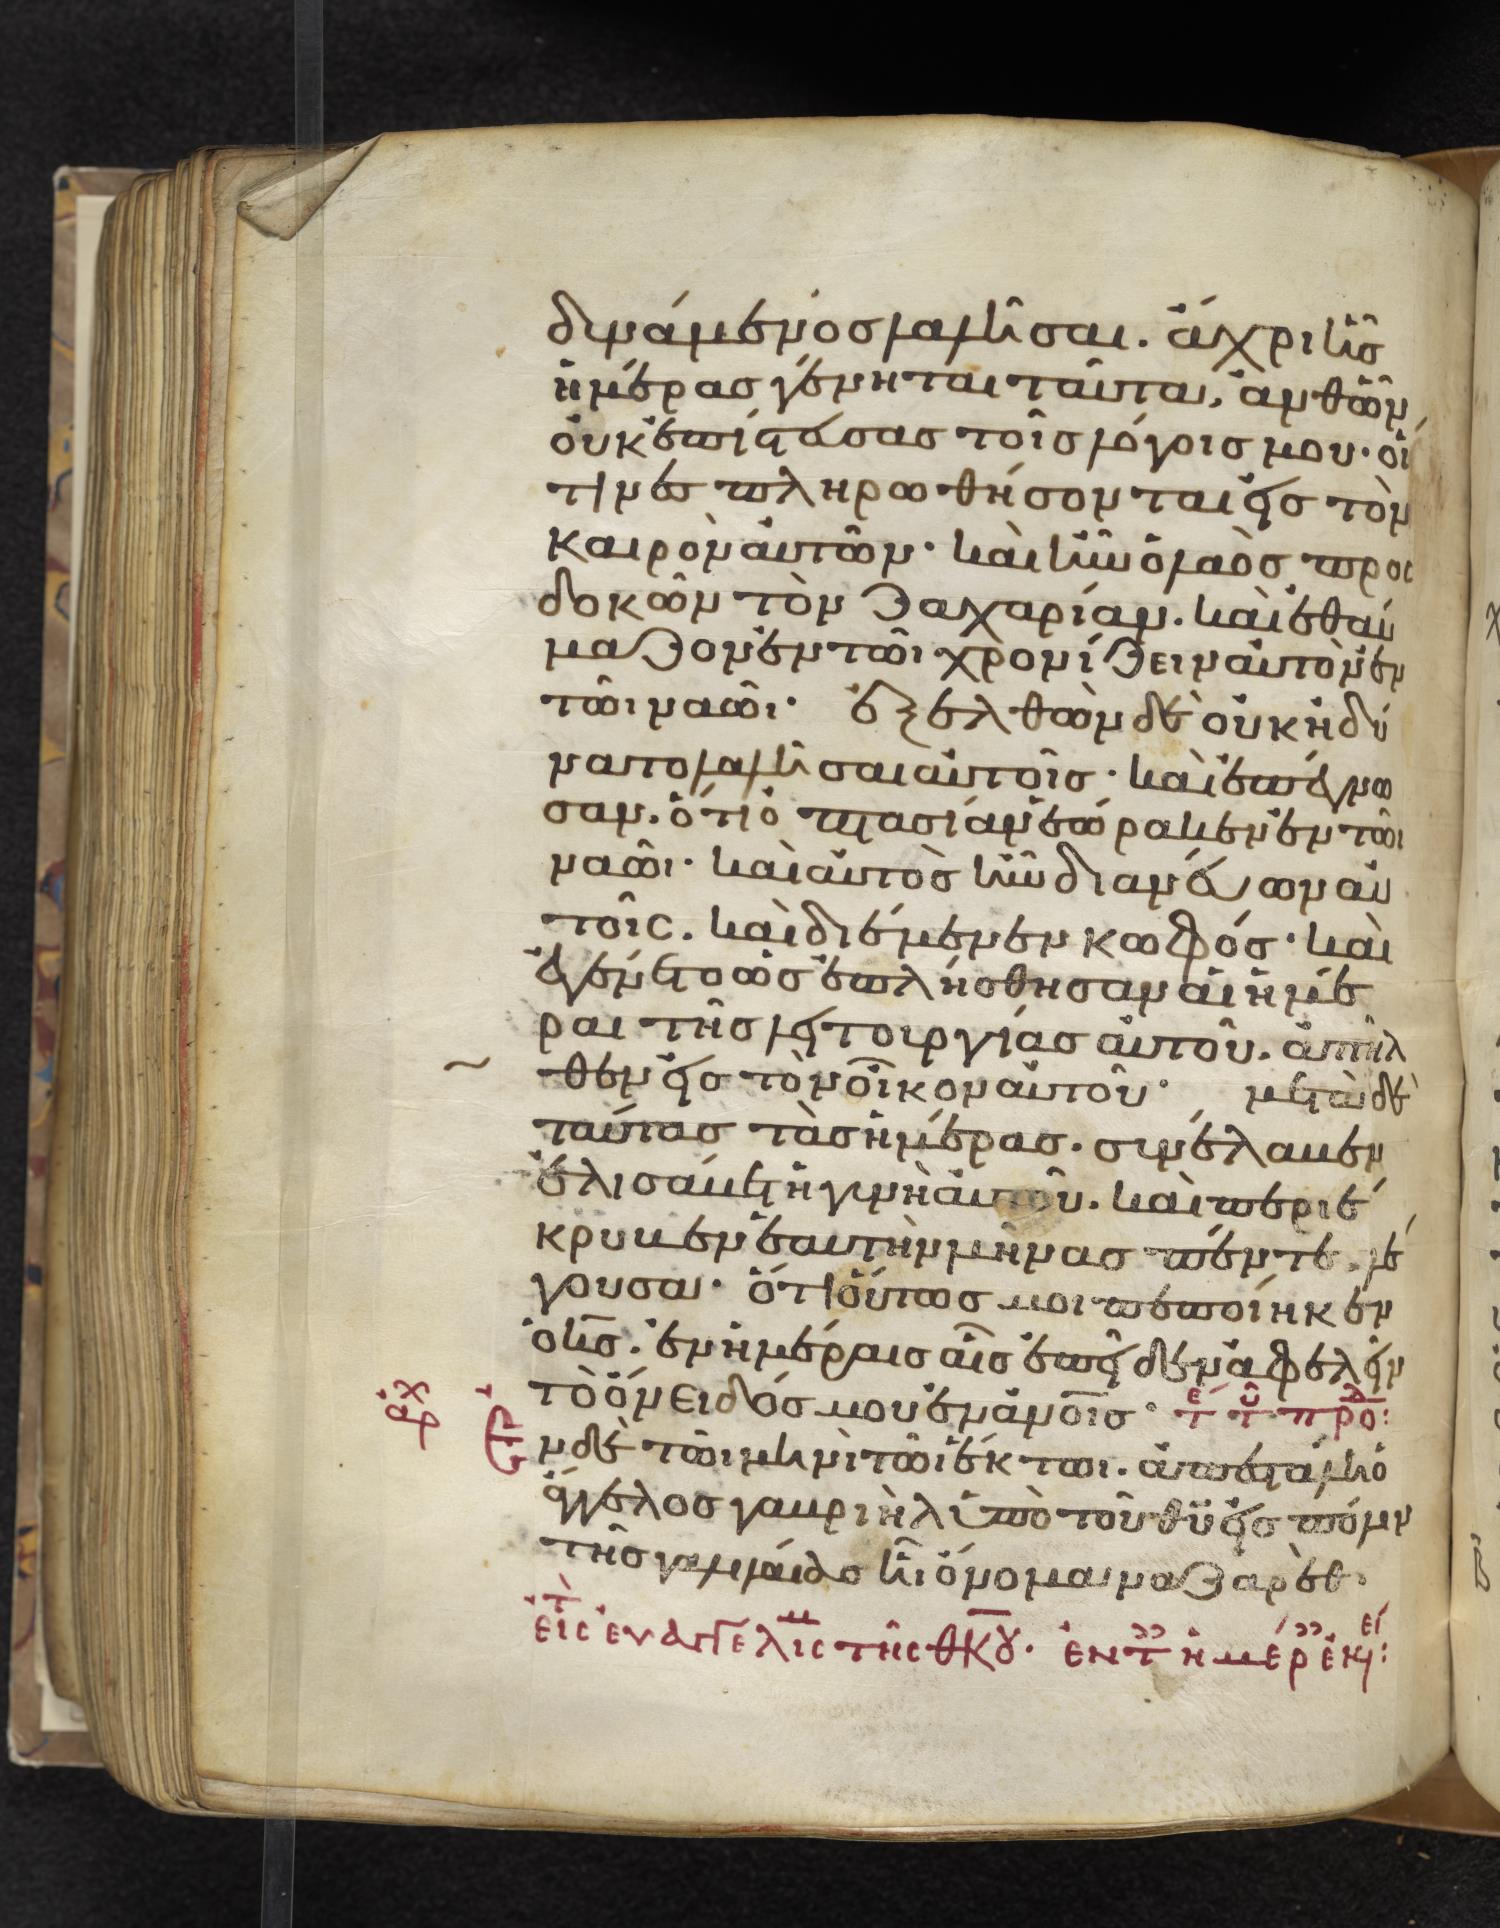 δυνάμενος λαλῆσαι. ἄχρι ἧς
ἡμέρας γένηται ταῦτα, ἀνθῶν
οὐκ ἐπίστευσας τοῖς λόγοις μου· οἵ
τινες πληρωθήσονται εἰς τὸν
καιρὸν αὐτῶν· καὶ ἦν ὁ λαὸς προσ
δοκῶν τὸν Ζαχαρίαν. καὶ ἐθαύ
μαζον ἐν τῶι χρονίζειν αὐτὸν ἐν
τῶι ναῶι· ἐξελθὼν δὲ οὐκ ἠδύ
νατο λαλῆσαι αὐτοῖς· καὶ ἐπέγνω
σαν. ὅτι ὀπτασίαν ἑώρακεν ἐν τῶι
ναῶι· καὶ αὐτὸς ἦν διανεύων αὐ
τοῖς. καὶ διέμενεν κωφός· καὶ
ἐγένετο ὡς ἐπλήσθησαν αἱ ἡμέ
ραι τῆς λειτουργίας αὐτοῦ. ἀπῆλ
θεν εἰς τὸν οἶκον αὐτοῦ· μετὰ δὲ
ταύτας τὰς ἡμέρας. συνέλαβεν
ἐλισάβετ ἡ γυνὴ αὐτοῦ. καὶ περιέ
κρυβεν ἑαυτὴν μῆνας πέντε. λέ
γουσα· ὅτι οὕτως μοι πεποίηκεν
ὁ κ̅ς̅. ἐν ἡμέραις αἷς ἐπεῖδεν ἀφελεῖν
τὸ ὄνειδός μου ἐν ἀν̅ο̅ι̅ς̅· τε τ̅ υ πρδο:
αρχ Ἐν δὲ τῶι μηνὶ τῶι ἕκτωι. ἀπεστάλη ὁ
ἄγγελος γαβριὴλ ὑπὸ τοῦ θ̅υ̅ εἰς πόλιν
τῆς γαλιλαίας ἧι ὄνομα ναζαρὲθ·
εἰς τ εὐαγγελισ τῆς θκ̅ου. ἐν τ ἡμέρ ἐκει: